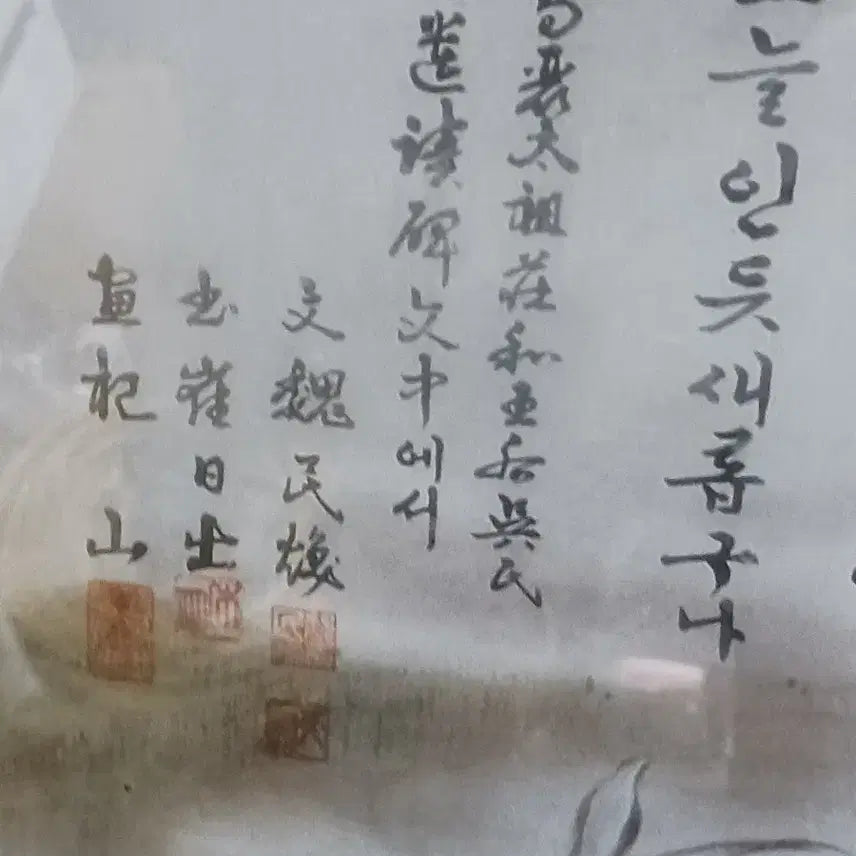 늘인듯새롭구나
麗太祖莊和王后吳氏
遺蹟碑文中에서
文魏民煥
書崔日出
畫杞山